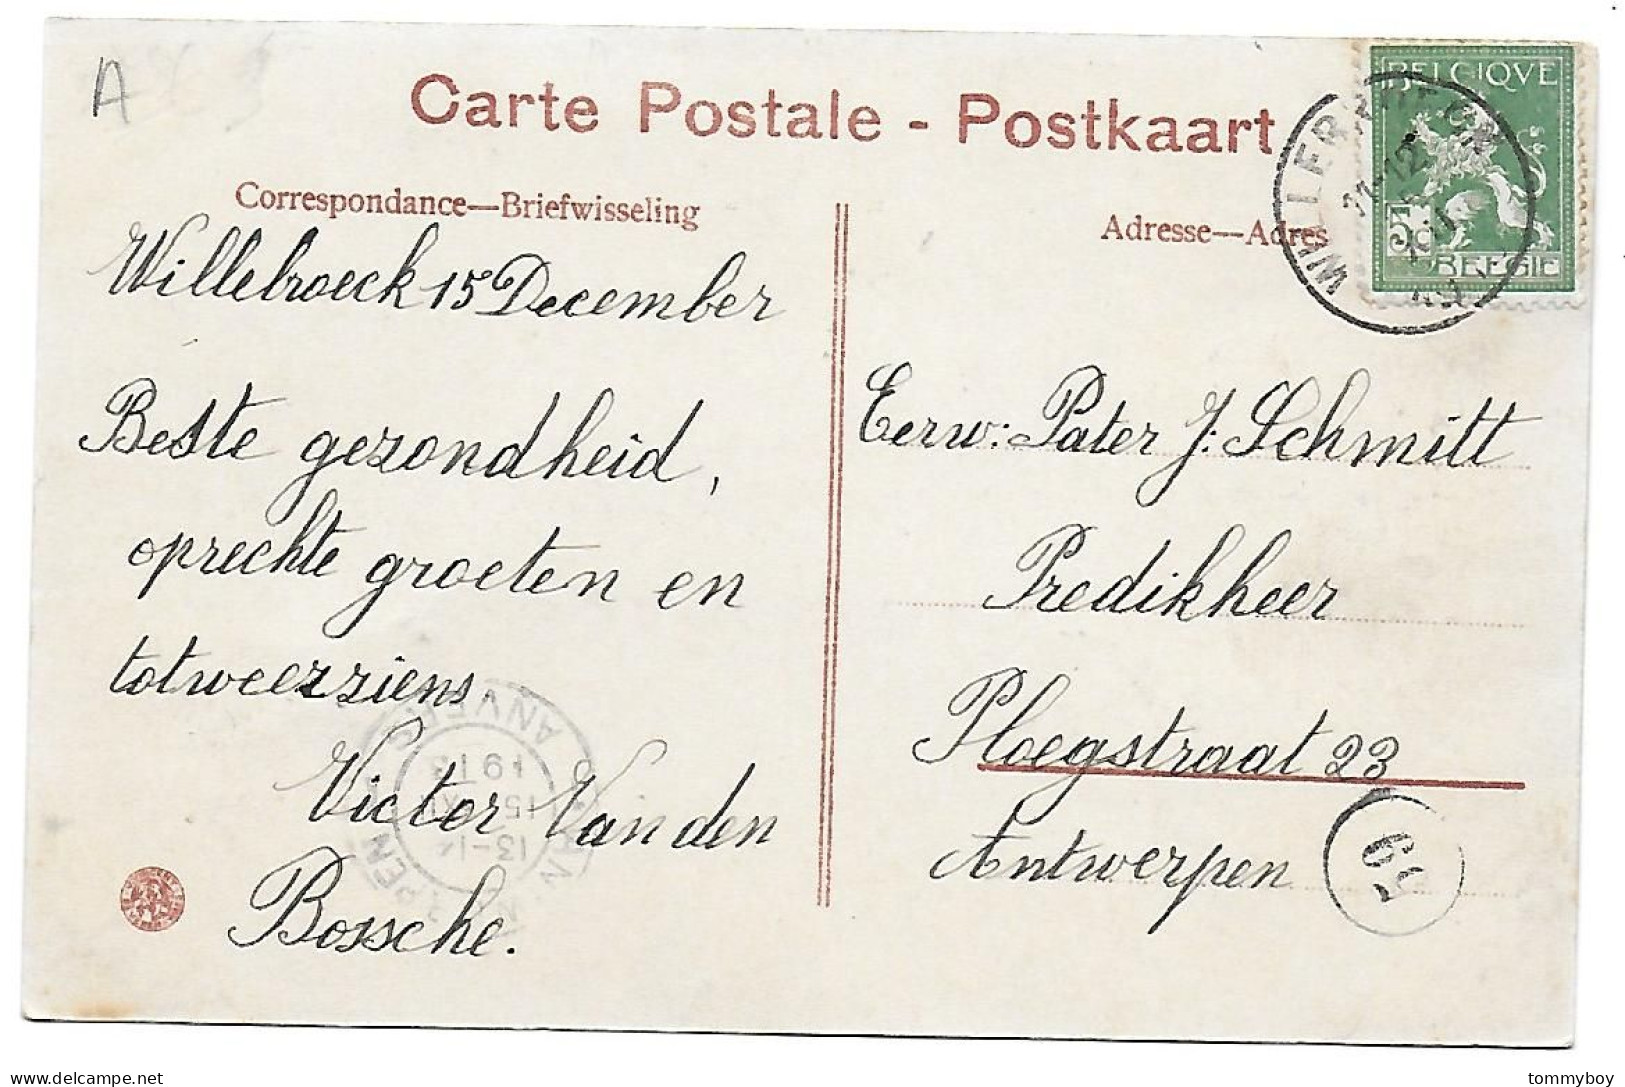 A
Carte Postale - Postkaart
Correspondance—Briefwisseling
Adresse—Adres
BELGIQVE
5
BELGIE
11-12
Willebroeck 15 December
Beste gezondheid,
oprechte groeten en
totweerziens
Victor Van den
Bossche.
ANVERS
1913
15 XII
13-14
ANTWERPEN
Eerw: Pater J: Schmitt
Predikheer
Ploegstraat 23
Antwerpen
delcampe.net
tommyboy